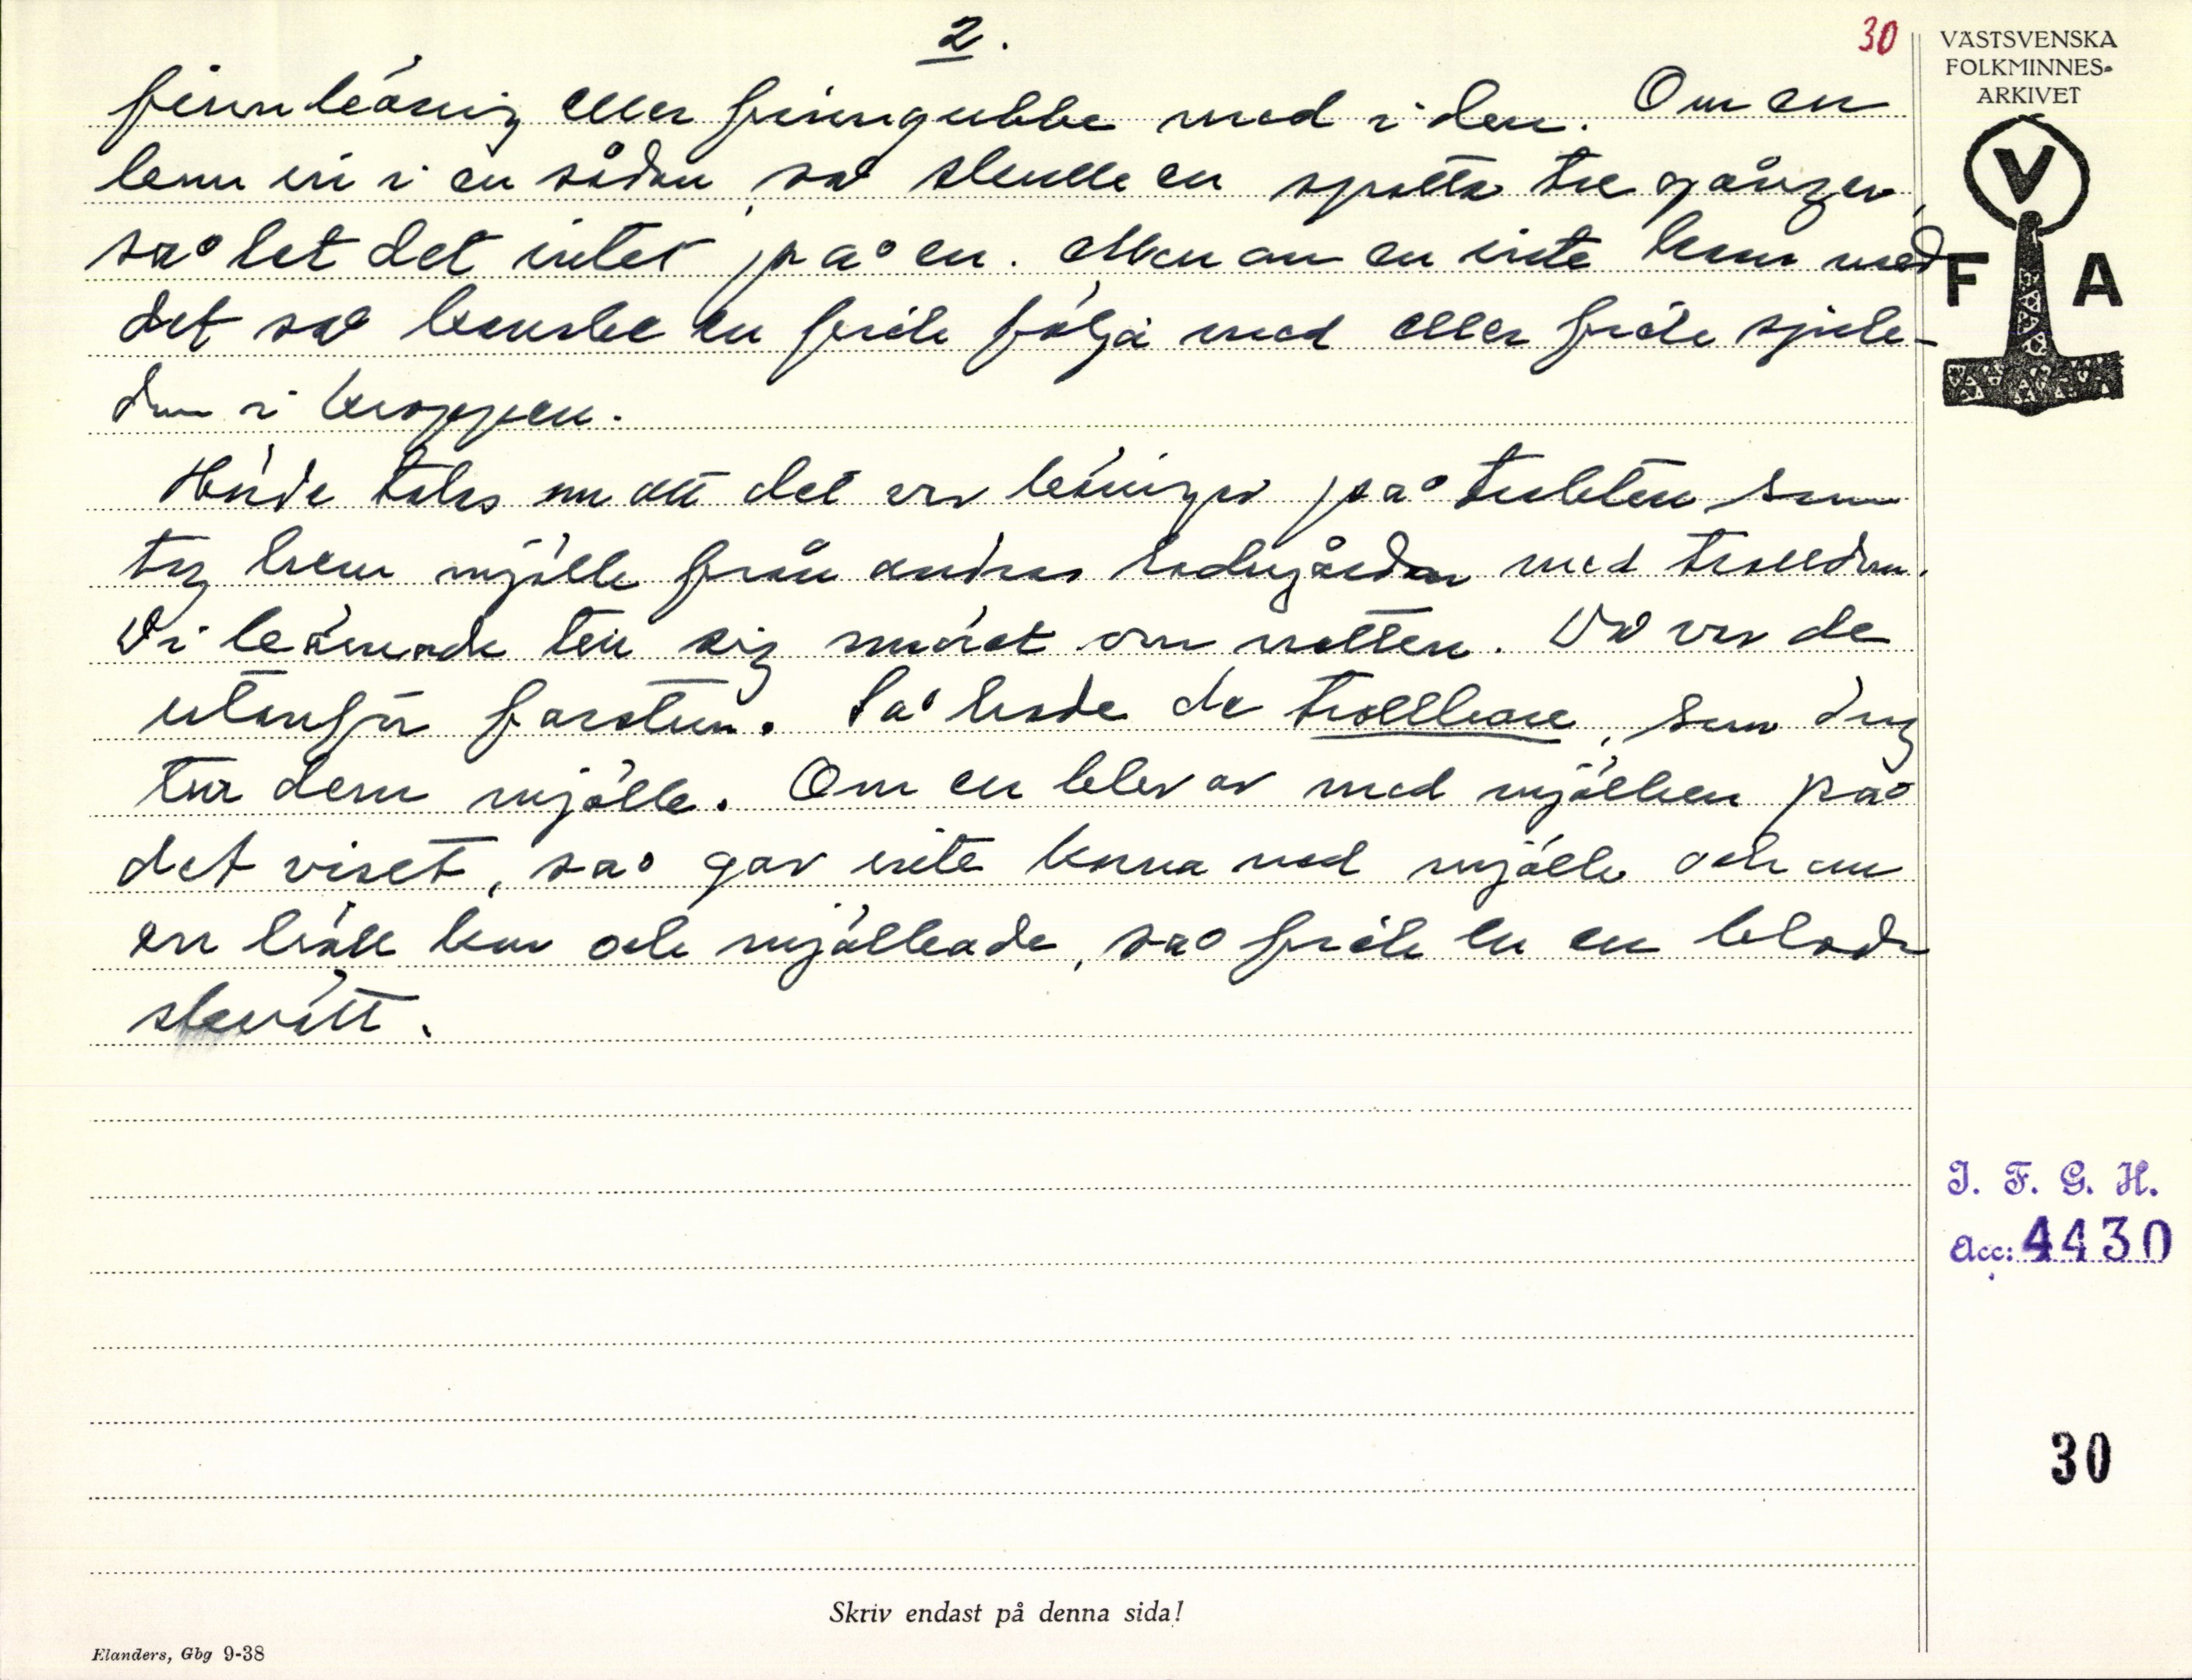 2.
30
VÄSTSVENSKA
FOLKMINNES-
ARKIVET
V
F A
finnkäring eller finngubbe med i den. Om en
kom in i en sådan, så skulle en spotta tre gånger,
så bet det intet på en. Men om en inte kom med
det så kanske en fick följa med eller fick sjuk-
dom i kroppen.
Hörde talas om att det var käringar på trakten som
tog hem mjölk från andras ladugårdar med trolldom.
Di kärnade till sig smöret om natten. Då var de
utanför farstun. Så hade de trollhare, som drog
till dem mjölk. Om en blev av med mjölken på
det viset, så gav inte korna ned mjölk och om
en höll kom och mjölkade, så fick en en blod-
skvätt.
I. F. G. H.
Acc: 4430
30
Skriv endast på denna sida!
Elanders, Gbg 9-38